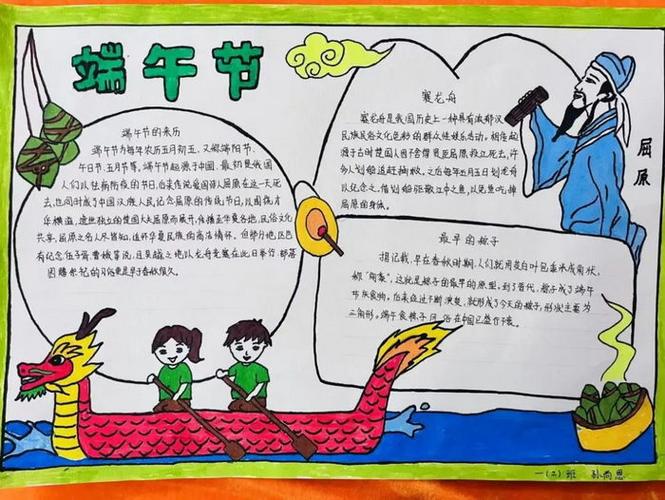 端午节
端午节的来历
端午节为每年农历五月初五,又称端阳节、
午日节、五月节等。端午节起源于中国,最初是我国
人们以祛病防疫的节日,后来传说爱国诗人屈原在这一天死
去,也同时成了中国汉族人民纪念屈原的传统节日。以围魏才
华横溢、遗世独立的楚国大夫屈原而展开,传播至华夏各地,民俗文化
共享,屈原之名人尽皆知,追怀华夏民族的高洁情怀。但部分地区也
有纪念伍子胥曹娥等说,且吴越之地以龙舟竞赛在此日举行部落
图腾祭祀的习俗更是早于春秋很久。
赛龙舟
赛龙舟是我国历史上一种具有浓郁汉
民族民俗文化色彩的群众性娱乐活动。相传起
源于古时楚国人因舍不得贤臣屈原投江死去,许
多人划船追赶拯救。之后每年五月五日划龙舟
以纪念之。借划船驱散江中之鱼,以免鱼吃掉
屈原的身体。
屈原
最早的粽子
据记载,早在春秋时期,人们就用茭白叶包黍米成角状,
称"角黍",这就是粽子的最早的原型。到了晋代,粽子成了端午
节庆食物。后来经过不断演变,就形成了今天的粽子,形状主要为
三角形。端午食粽子风俗在中国已盛行千载。
一(2)班 孙尚恩